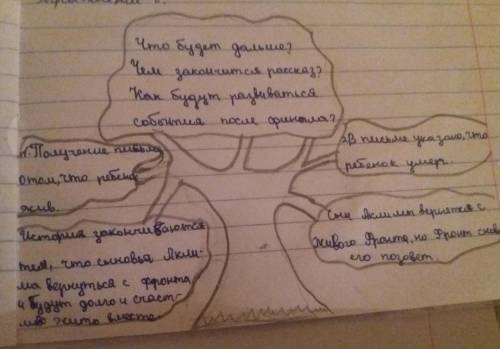 Что будет дальше?
Чем закончится рассказ?
Как будут развиваться
события после финала?
1. Получение письма
о том, что ребено
жив.
2В письме указано, что
ребенок умер.
История заканчиваются
тем, что сыновья Акли-
ма вернуться с ффронта
и будут долго и счаст-
ливо жить вместе.
Сын Аклимы вернется с
живого Фронта, но Фронт снова
его позовет.